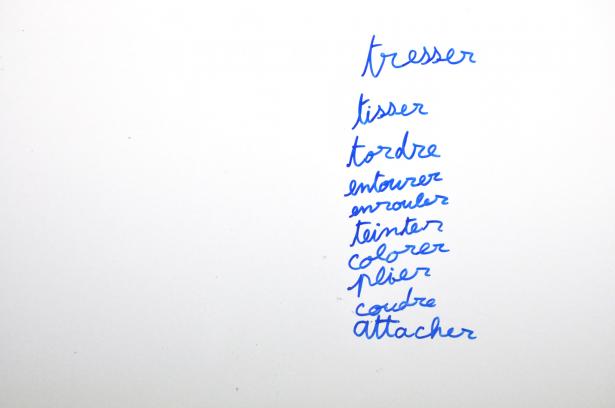 tresser
tisser
tordre
entourer
enrouler
teinter
colorer
plier
coudre
attacher